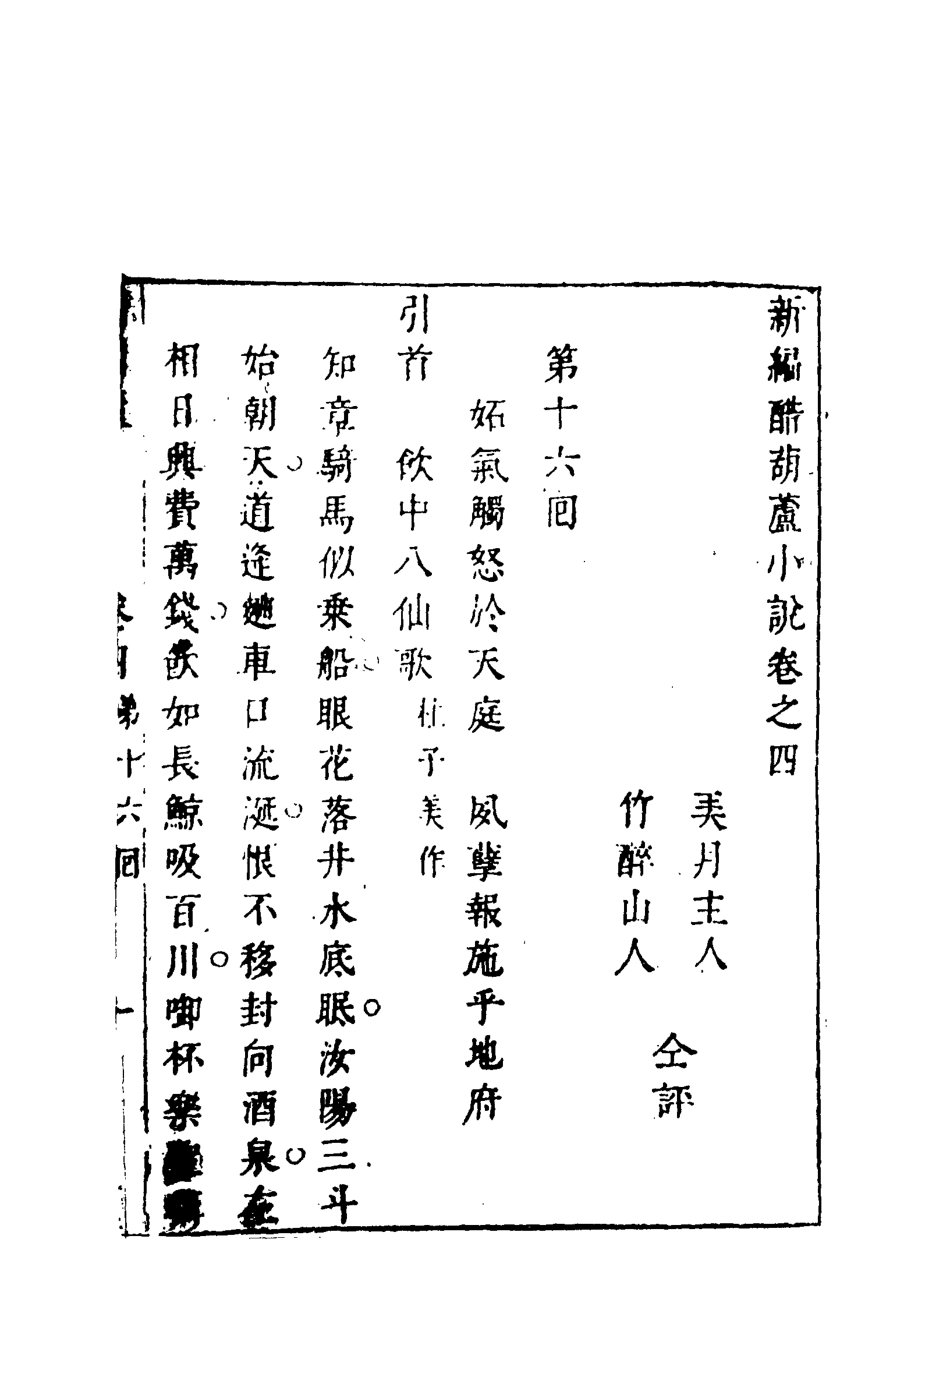 新編醋葫蘆小說卷之四
美月主人
竹醉山人
仝評
第十六囘
妬氣觸怒於天庭　夙孽報施乎地府
引首　飲中八仙歌 杜子美作
知章騎馬似乗船眼花落井水底眠汝陽三斗
始朝天道逢麯車口流涎恨不移封向酒泉左
相日興費萬錢飲如長鯨吸百川啣杯樂
卷四 第十六囘 一